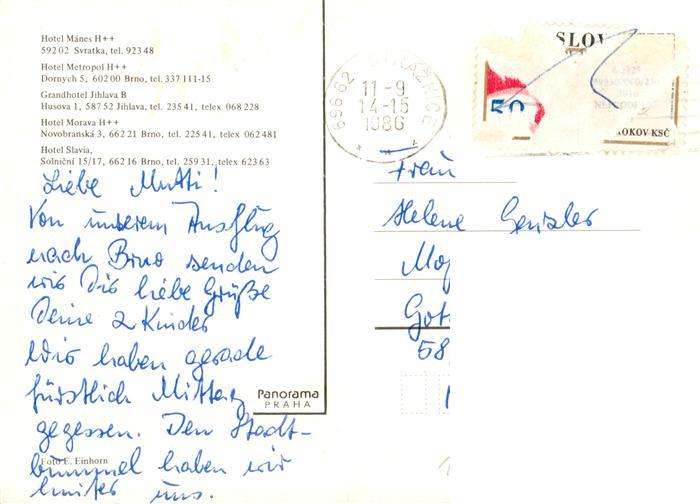 Hotel Mánes H++
592 02 Svratka, tel. 923 48
Hotel Metropol H++
Dornych 5, 602 00 Brno, tel. 337 111-15
Grandhotel Jihlava B
Husova 1, 587 52 Jihlava, tel. 235 41, telex 068 228
Hotel Morava H++
Novobranská 3, 662 21 Brno, tel. 225 41, telex 062 481
Hotel Slavia,
Solniční 15/17, 662 16 Brno, tel. 259 31, telex 623 63
Liebe Mutti!
Von unserem Ausflug
nach Brno senden
wir Dir liebe Grüße
Deine 2 Kinder
Wir haben gerade
fürstlich Mittag
gegessen. Den Stadt-
bummel haben wir
hinter uns.
Foto E. Einhorn
Panorama
PRAHA
696 62
11-9
14-15
1986
SLOV
50
OKOV KSČ
Frau
Helene
Got
58